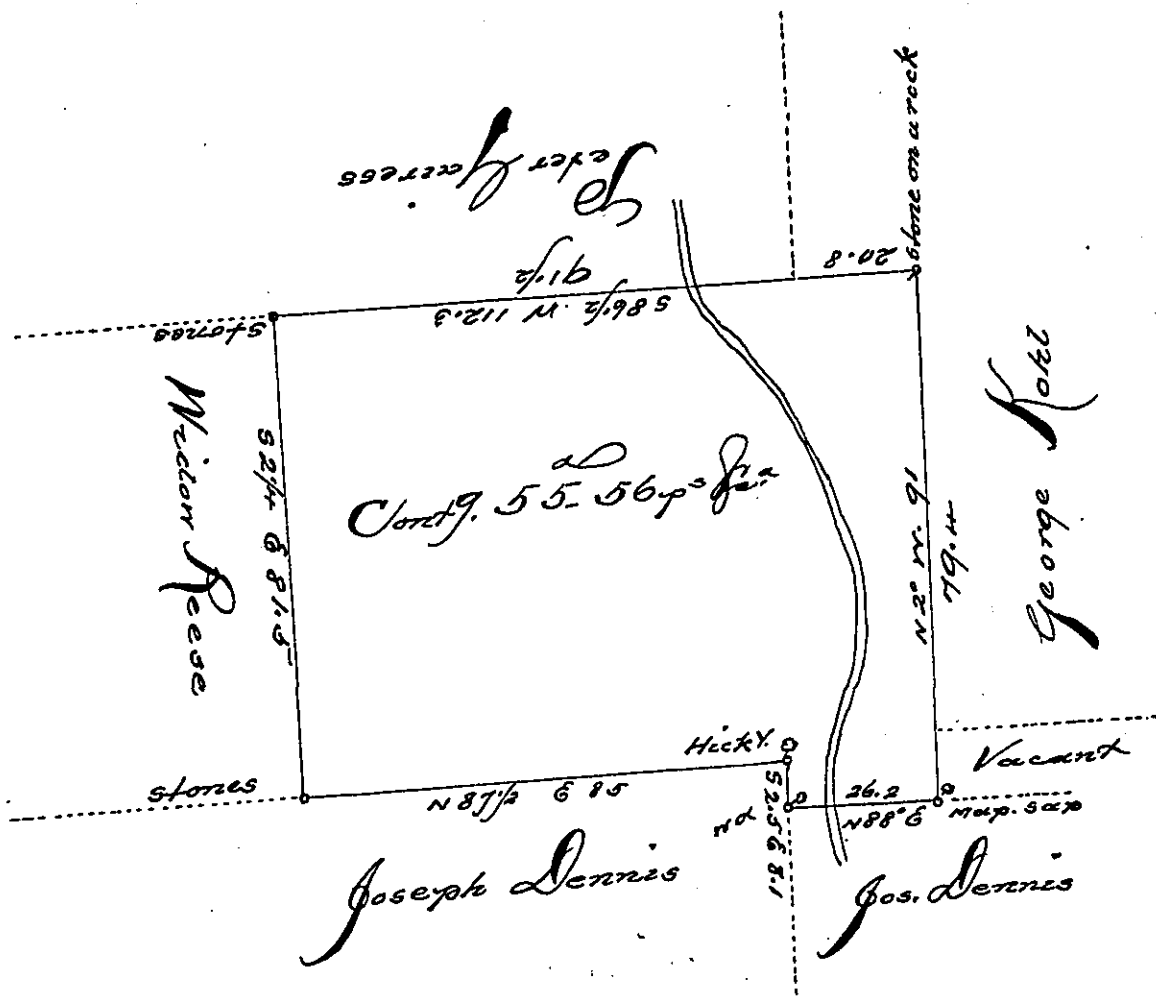 Peter Gaires
Stone on a rock
20.8
91½
S 86½ W 112.3
Stones
Widow Reese
S 2¼ E 81.5
Contg. 55 a 56 ps &c.a
N 2° W. 91
79.4
George Kohl
Hick'y.
Vacant
stones
N 87½ E 85
S 2.5 E 8.1
26.2
N 88° E
Map. sap
Joseph Dennis
Jos. Dennis